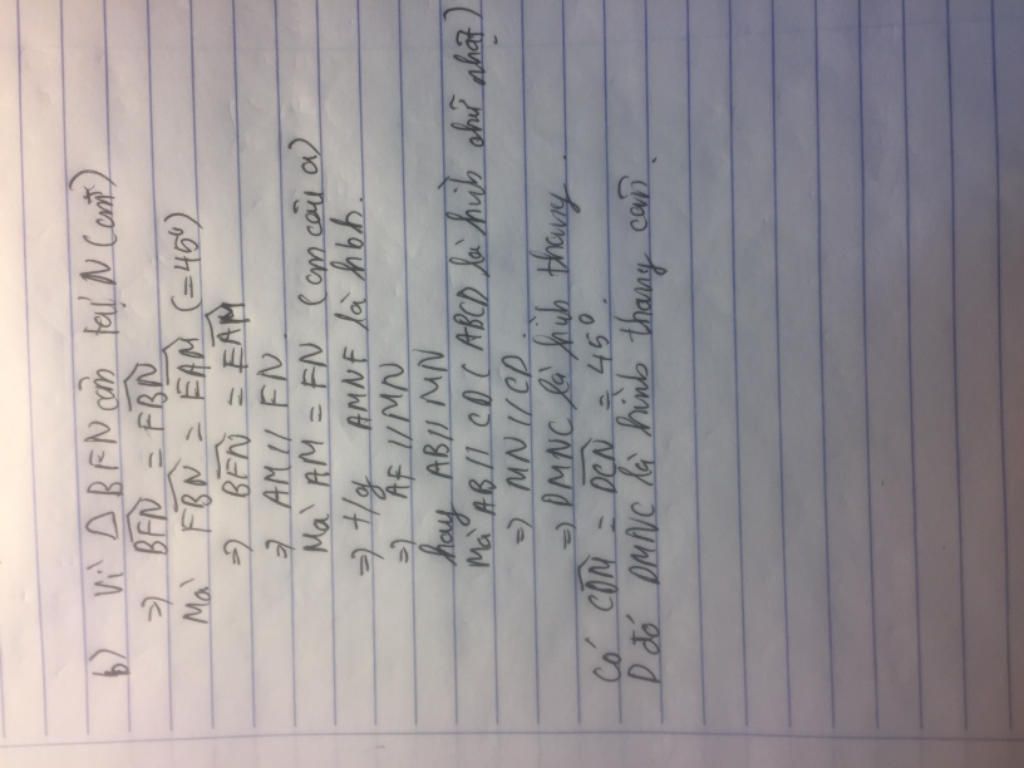 b) Vì Δ BFN cân tại N (cmt)
=> BFN = FBN
Mà FBN = EAM (=45°)
=> BFN = EAM
=> AM // FN
Mà AM = FN (cm câu a)
=> t/g AMNF là hbh.
=> AF // MN
hay AB // MN
Mà AB // CD ( ABCD là hình chữ nhật )
=> MN // CD
=> DMNC là hình thang.
Có CDM = DCN = 45°
D đó DMNC là hình thang cân.